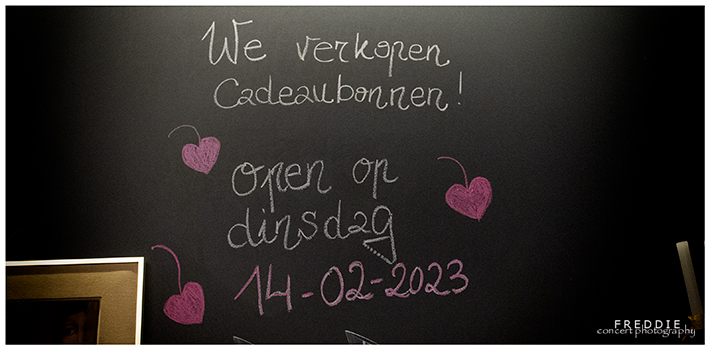 We verkopen
Cadeaubonnen!
open op
dinsdag
14-02-2023
FREDDIE
concert photography